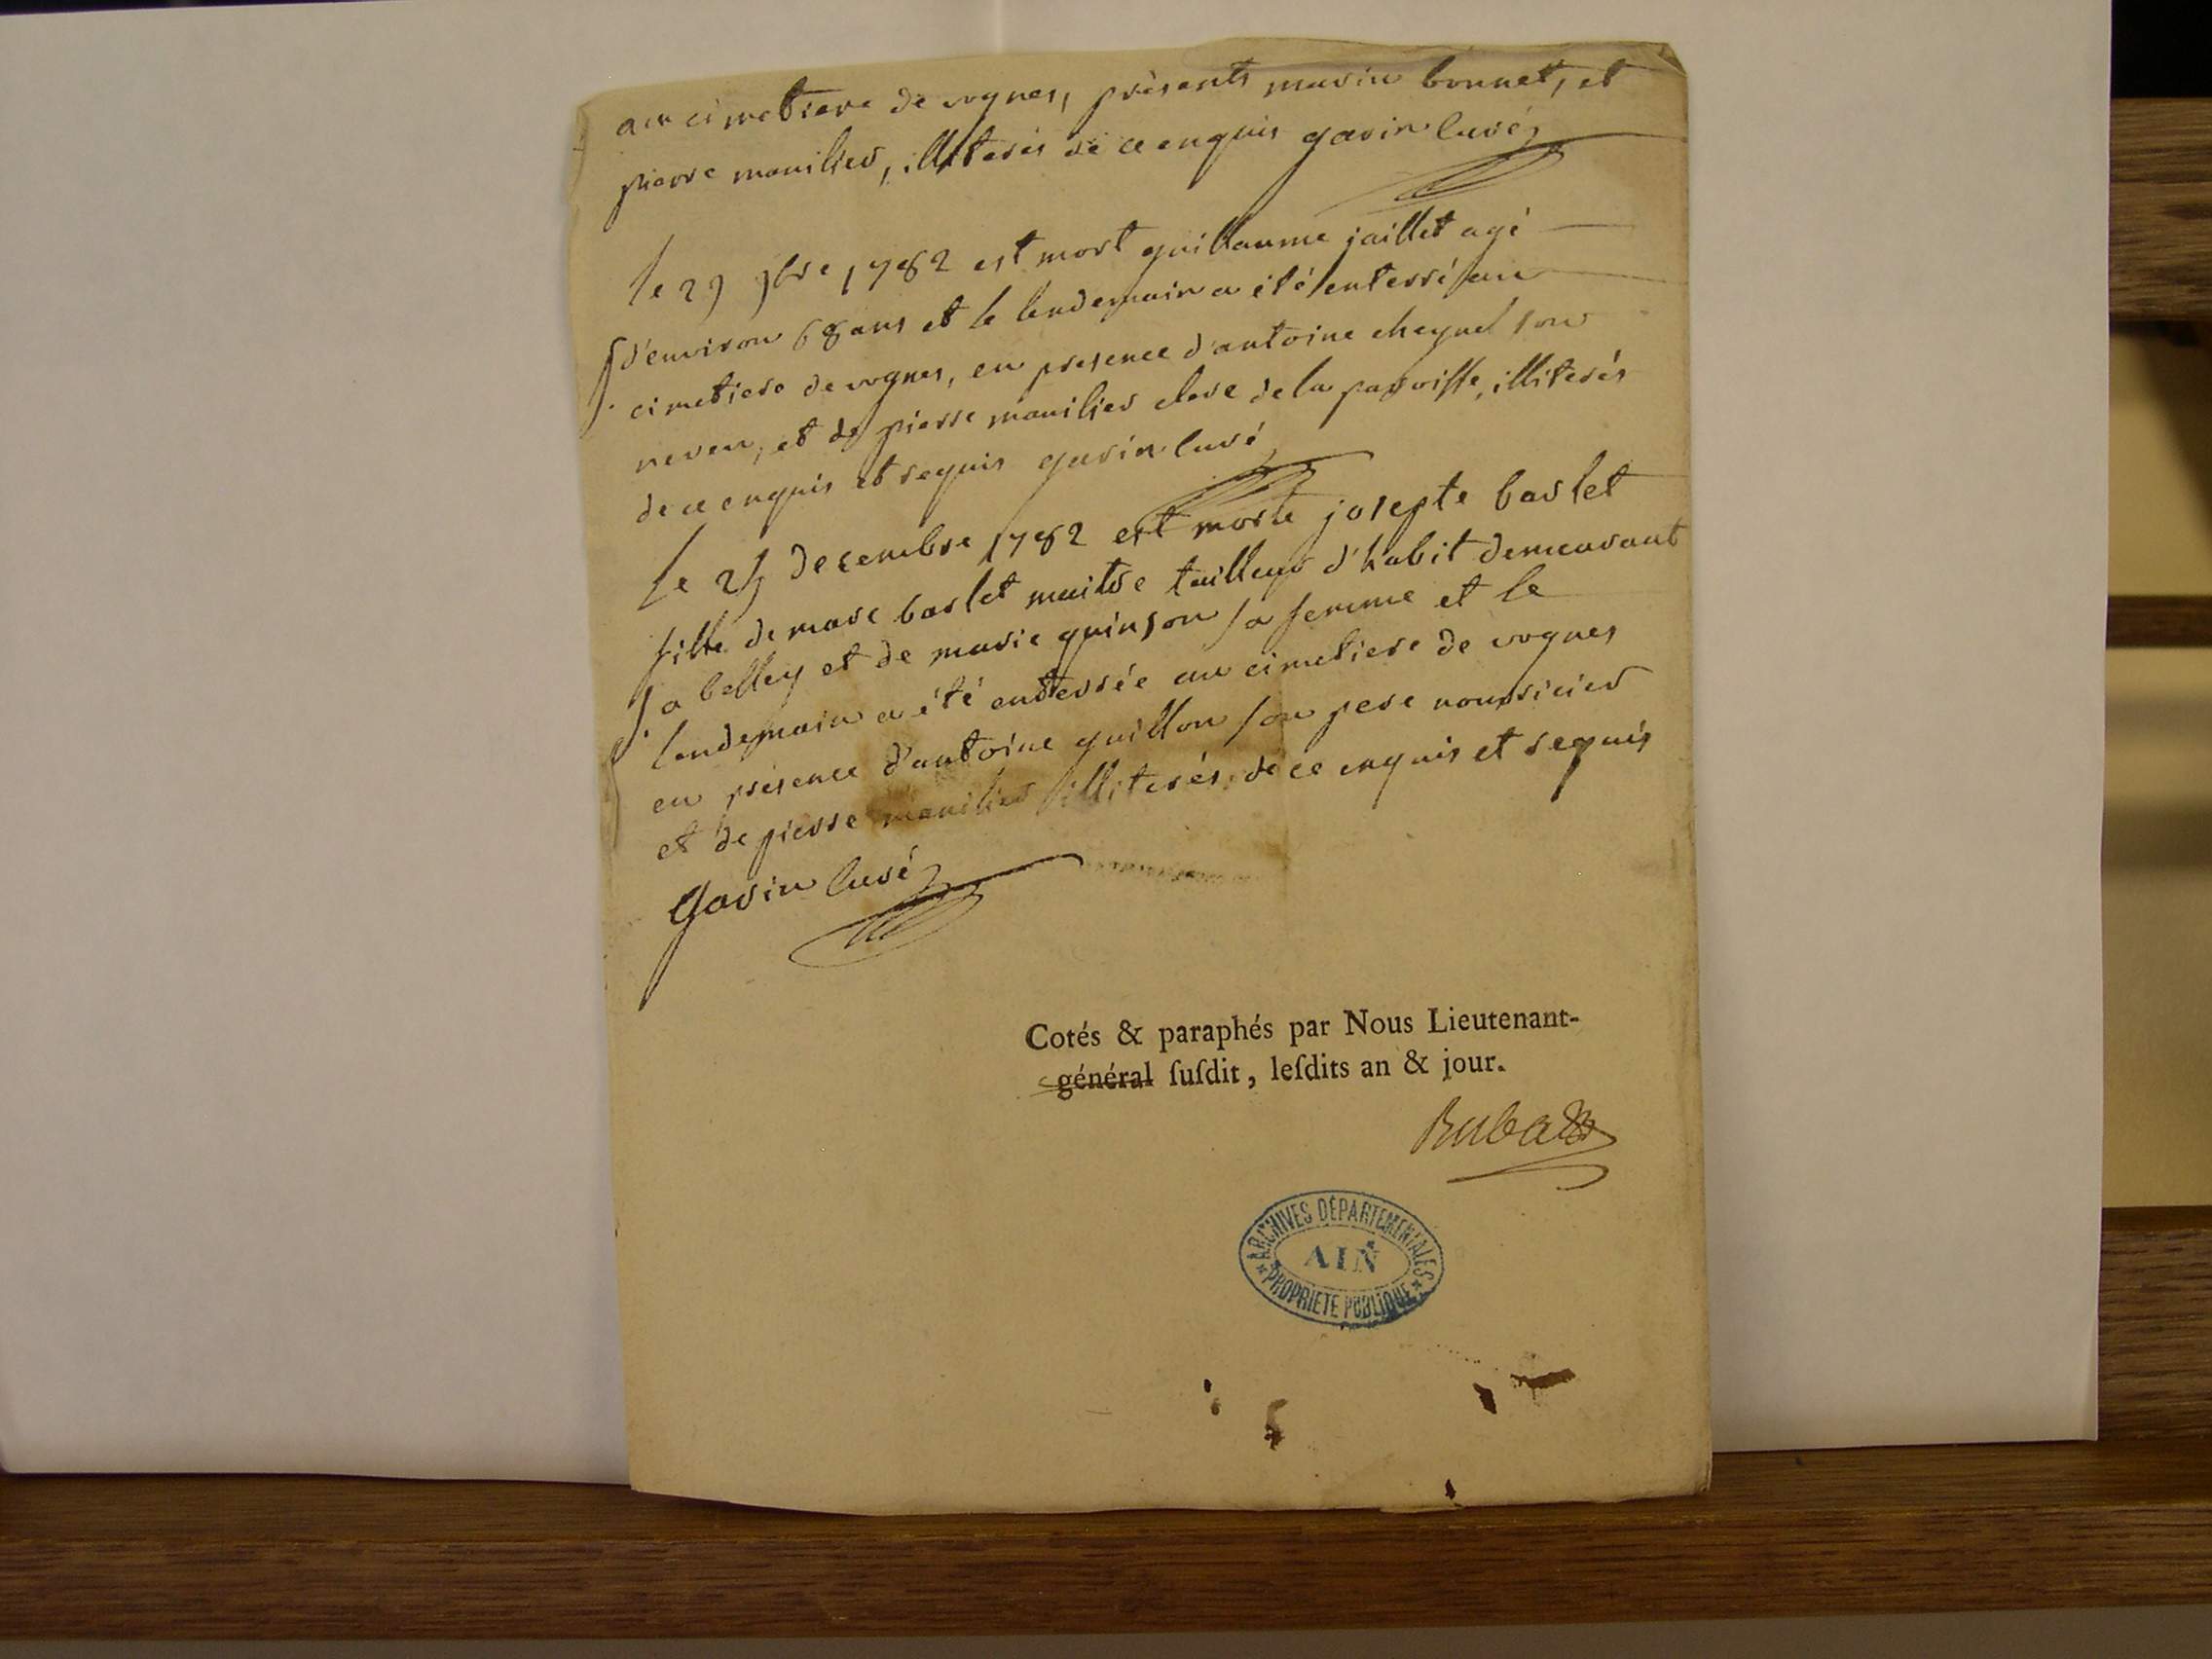 au cimetiere de vognes, présents marin bonnet, et
pierre manilier, illiterés de ce enquis gavin curé
le 29 9bre 1782 est mort guillaume jaillet agé
d'environ 68 ans et le lendemain a été enterré au
cimetiere de vognes, en presence d'antoine cheynel son
neveu, et de pierre manilier clerc de la paroisse, illiterés
de ce enquis et requis gavin curé
le 25 decembre 1782 est morte josepte barlet
fille de marc barlet maitre tailleur d'habit demeurant
a belley et de marie quinson sa femme et le
lendemain a été enterrée au cimetiere de vognes
en présence d'antoine guillon son pere nourricier
et de pierre manilier illiterés de ce enquis et requis
Gavin curé
Cotés & paraphés par Nous Lieutenant-
général ſuſdit, leſdits an & jour.
Rubat
ARCHIVES DÉPARTEMENTALES
AIN
PROPRIÉTÉ PUBLIQUE